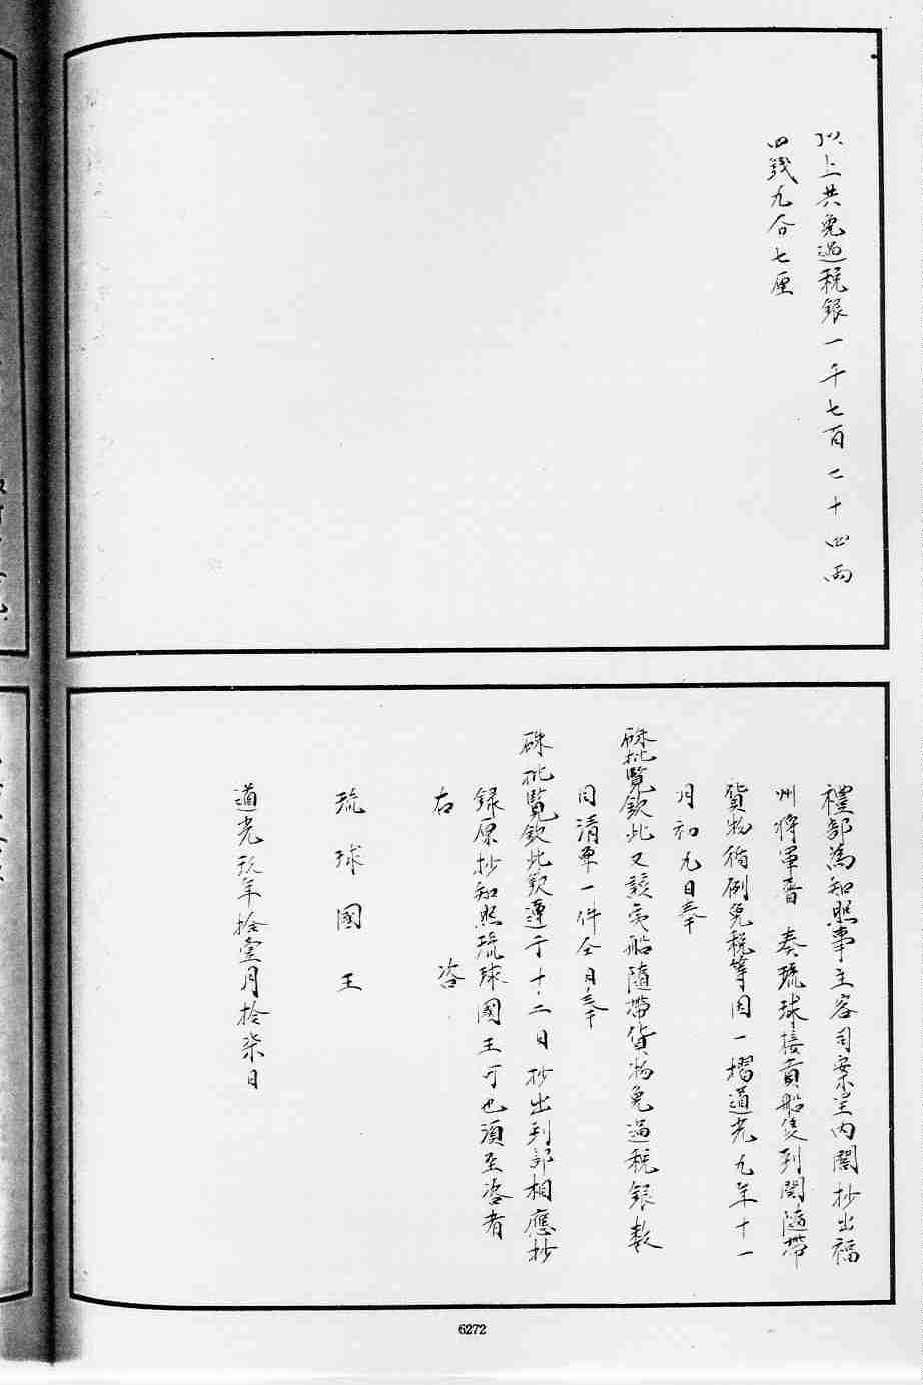 以上共免過税銀一千七百七十四兩
四錢九分七厘
禮部為知照事主客司案呈内閣抄出福
州將軍 奏琉球接貢船隻到關隨帶
貨物循例免税等因一摺道光九年十一
月初九日奉
硃批覽欽此又該夷船隨帶貨物免過税銀數
目清單一件仝日奉
硃批覽欽此欽遵于十二日抄出到部相應抄
録原抄知照琉球國王可也須至咨者
右咨
琉球國王
道光玖年拾壹月拾柒日
6272